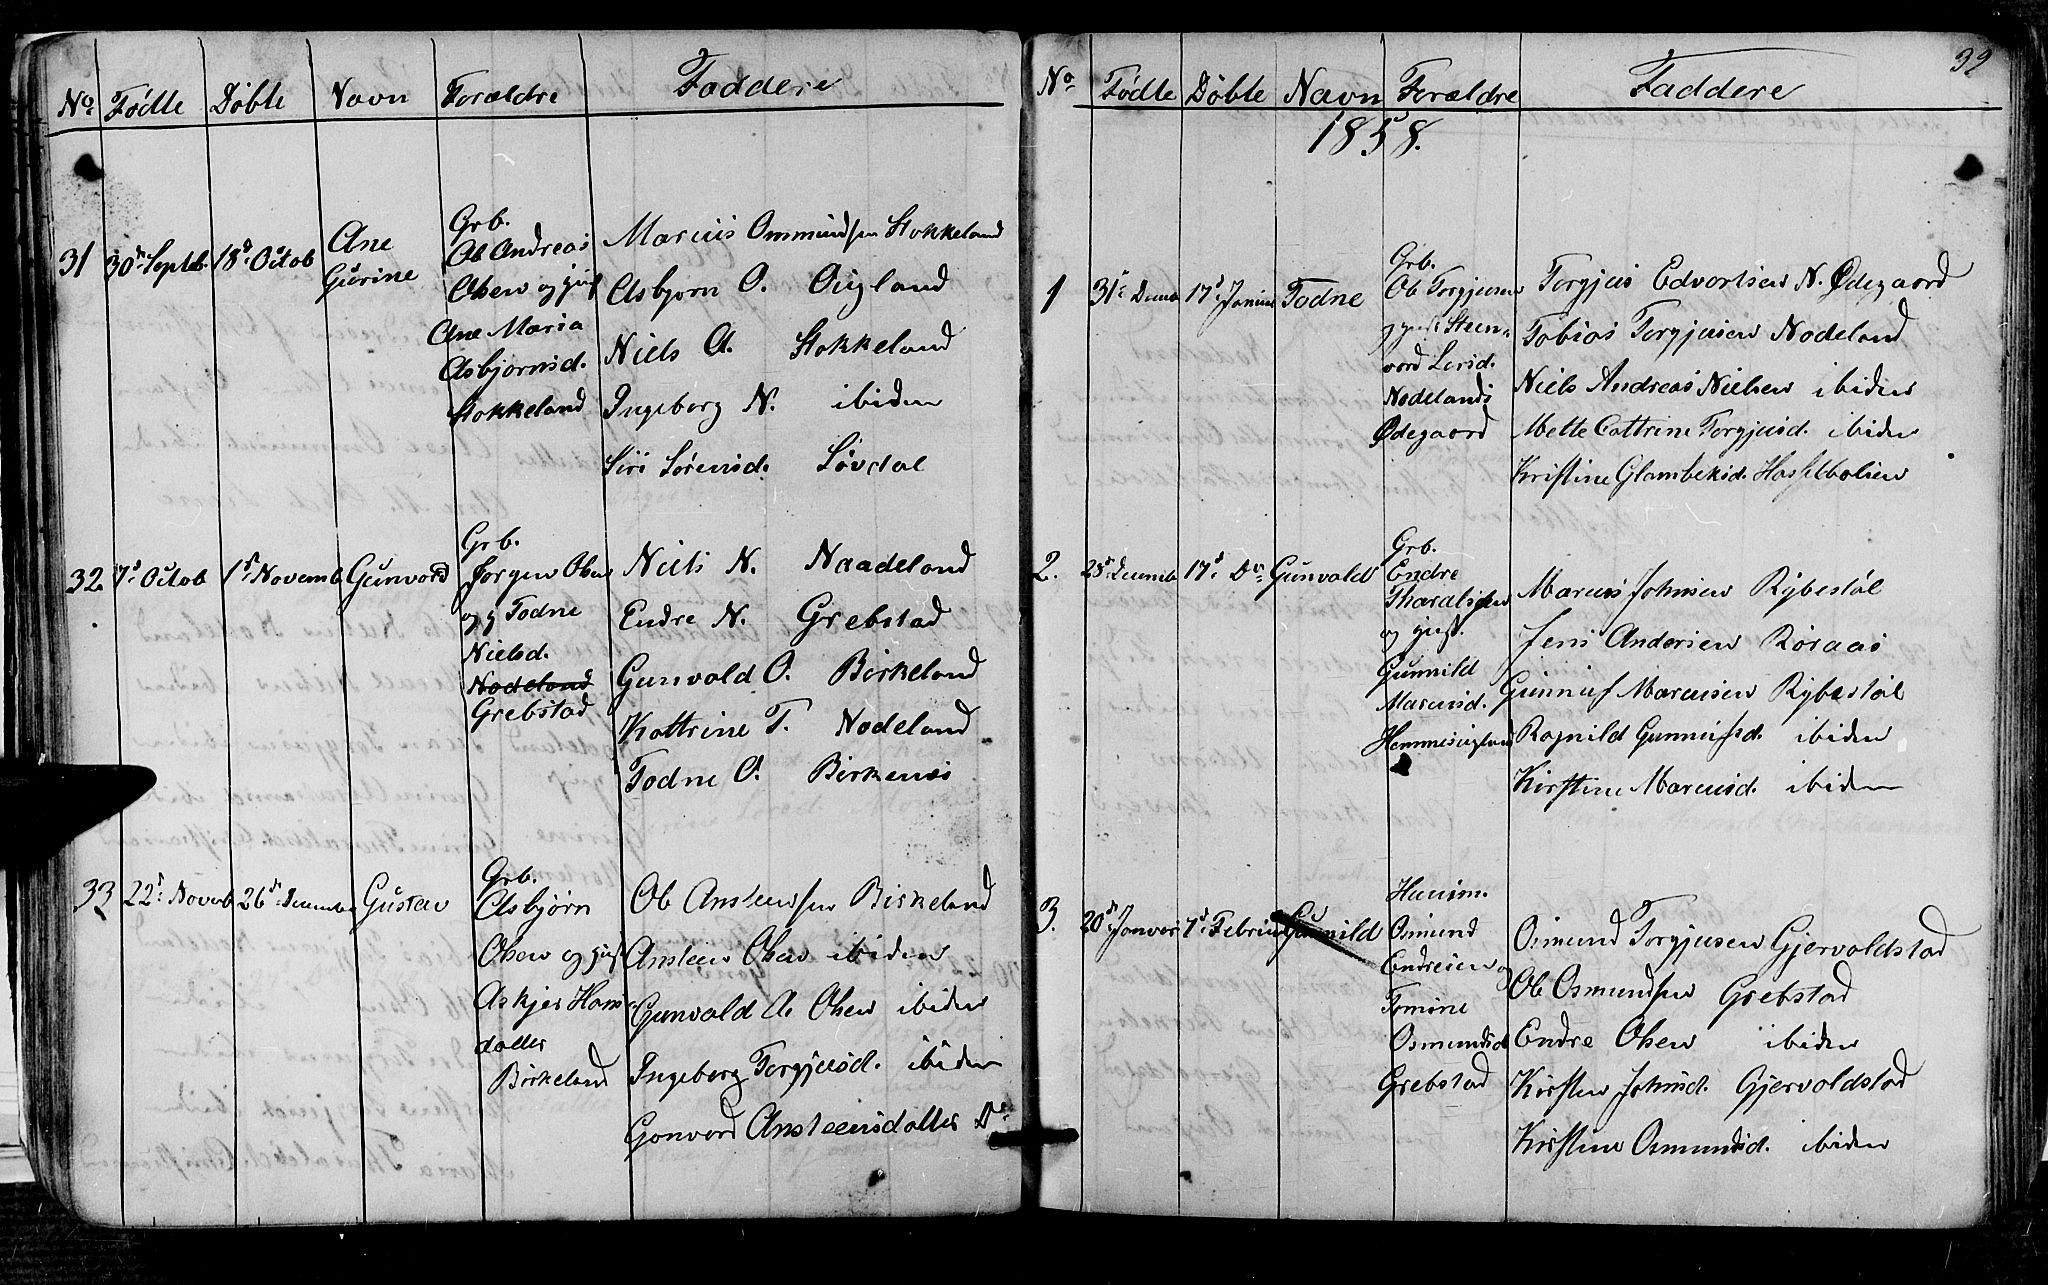 No Födte Döbte Navn Forældre Faddere
31 30d Septb. 18d Octob Ane Gurine
Grb.
Ole Andreas
Olsen og
Ane Maria
Asbjørnsd.
Stokkeland
Marcus Ommundsen Stokkeland
Asbjørn O. Øigland
Niels A. Stokkeland
Ingeborg N. ibiden
Siri Sørensd. Løvdal
32. 7d Octob 1d Novemb Gunvord
Grb.
Jørgen Olsen
og Todne
Nielsd.
Nodeland
Grebstad
Niels N. Naadeland
Endre N. Grebstad
Gunvald O. Birkeland
Kattrine T. Nodeland
Todne O. Birkenes
33 22d Novemb 26d December Gustav
Grb.
Asbjørn
Olsen og
Askjer Hom
datter
Birkeland
Ole Ansteensen Birkeland
Ansteen Olsen ibiden
Gunvald A. Olsen ibiden
Ingeborg Torgjusd. ibiden
Gonvord Ansteensdatter Do
39
No Födte Döbte Navn Forældre Faddere
1858.
1 31d 17d Todne
Grb.
Ole Torgjusen
Steen-
vord
Nodelands
Ødegaard
Torgjus Edvartsen N. Ødegaard
Tobias Torgjusen Nodeland
Niels Andreas Nielsen ibiden
Mette Cattrine Torgjusd. ibiden
Kristine Glambeksd.
2. 25d Decemb 17d Do Gunvald
Grb.
Endre
Tharalsen
og
Gunnild
Marcusd.
Marcus Johnsen Rybestøl
Jens Andersen Røraas
Gunnuf Marcusen Rybestøl
Ragnild Gunnufsd. ibiden
Kirstine Marcusd. ibiden
3. 20d Januar 7d Februar Gunnild
Huusm.
Osmund
Endresen og
Tomine
Osmundsd
Grebstad
Osmund Torgjusen Gjervoldstad
Ole Osmundsen Grebstad
Endre Olsen ibiden
Kirsten Johnsd. Gjervoldstad
Kirstine Osmundsd. ibiden